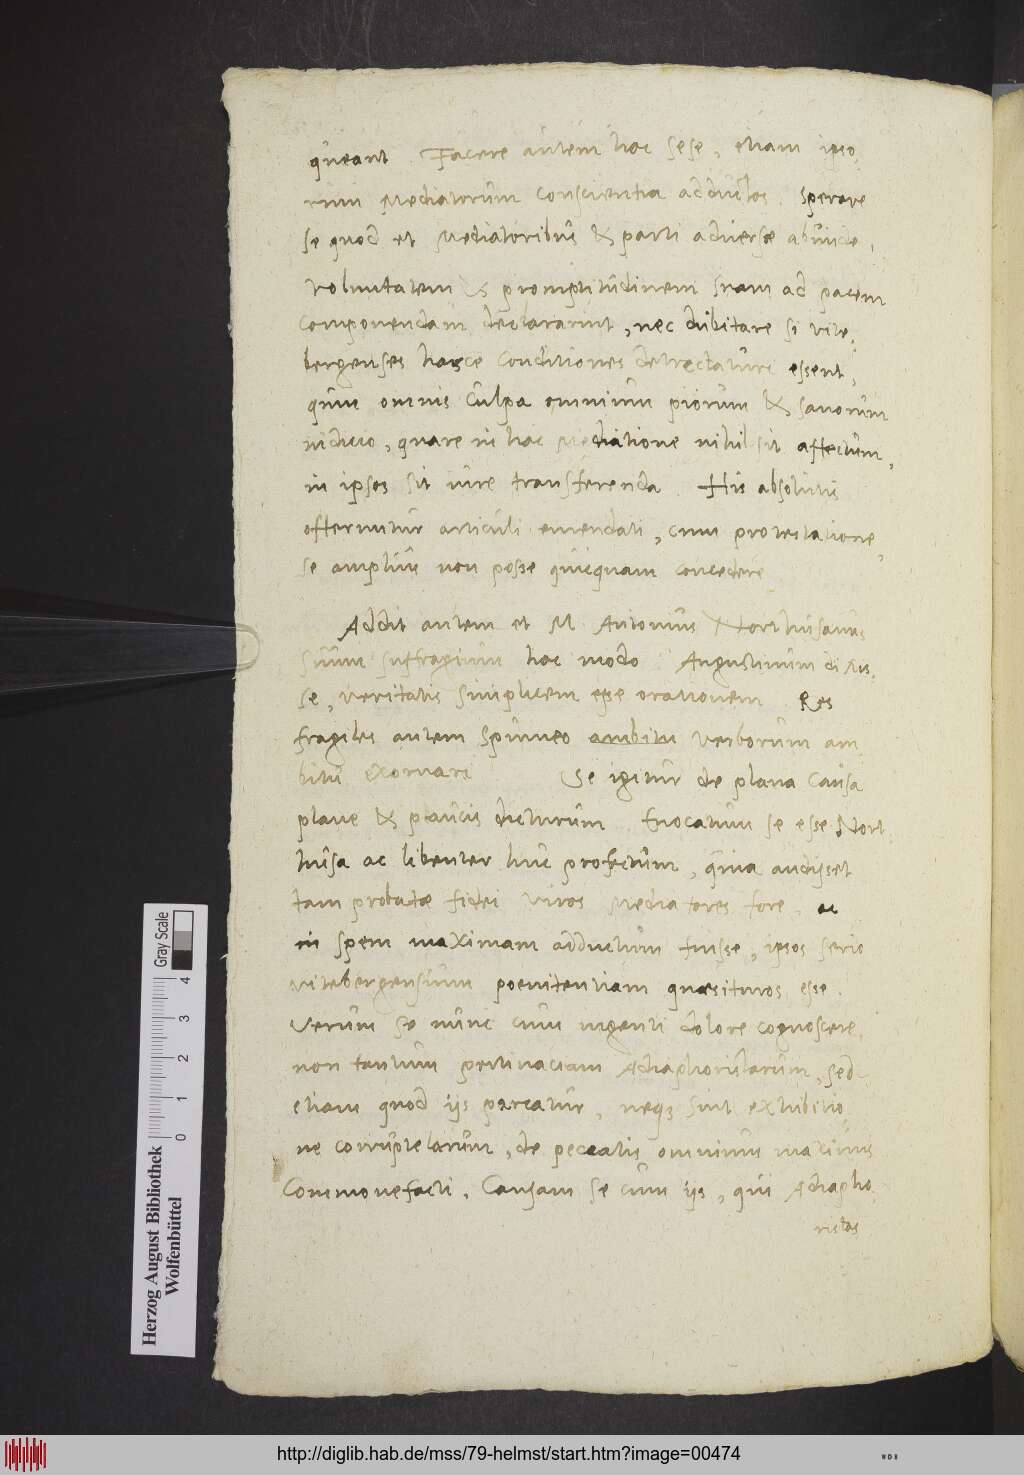 queant. Facere autem hoc sese, etiam ipso,
rum Mediatorum conscientia adductos. Sperare
se quod et Mediatoribus & parti adversæ abunde,
voluntatem & promptitudinem suam ad pacem
componendam declararint, nec dubitare si vite,
bergenses hasce conditiones detrectaturi essent,
quin omnis culpa omnium piorum & sanorum
iudicio, quare in hac Mediatione nihil sit affectum,
in ipsos sit iure transferenda. His absolutis
offeruntur articuli emendati, cum protestatione,
se amplius non posse quicquam concedere
Addit autem et M. Antonius Northusanus
suum suffragium hoc modo. Augustinum dixis,
se, veritatis simplicem esse orationem. Res
fragiles autem spinneo ambitu verborum am
bitu exornari Se igitur de plana causa
plane & paucis dicturum. Evocatum se esse Nort
husa ac libenter huc profectum, quia audijset
tam probatæ fidei viros Mediatores fore, ac
in spem maximam adductum fuisse, ipsos serio
vitebergensium poenitentiam quæsituros esse.
Verum se nunc cum ingenti dolore cognoscere,
non tantum pertinaciam Adiaphoristarum, sed
etiam quod ijs parcatur, neqꝫ sint exhibitio
ne corruptelarum, de peccatis omnium maximis
Commonefacti. Causam se cum ijs, qui Adiapho
ristas
Herzog August Bibliothek
Wolfenbüttel
0 1 2 3 4
Gray Scale
http://diglib.hab.de/mss/79-helmst/start.htm?image=00474